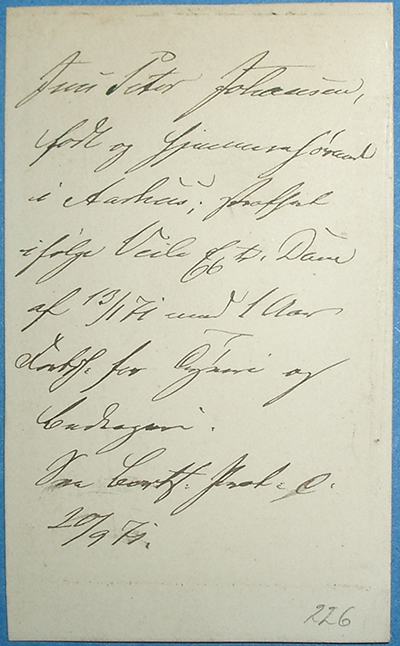 Jens Peter Johansen,
født og hjemmehørende
i Aarhus; straffet
ifølge Veile Ex. Dom
af 13/1 71 med 1 Aar
Forbh. for Tyveri og
Bedrageri.
See Prot. C.
20/9 71.
226